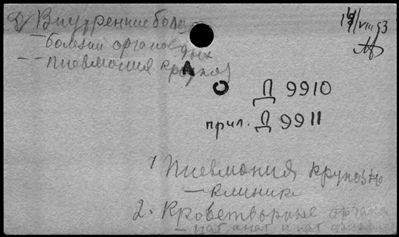 2) Внутренние бол.
– болезни органов дых
– – пневмония крупоз
14/VIII 93
Д 9910
прил. Д 9911
1 Пневмония крупозная
– клиника
2. Кроветворные органы
– пат. анат. и пат.